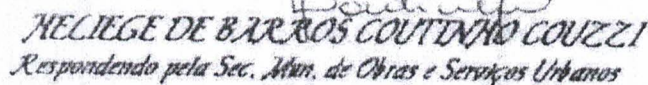 HELIEGE DE BARROS COUTINHO COUZZI
Respondendo pela Sec. Mun. de Obras e Serviços Urbanos